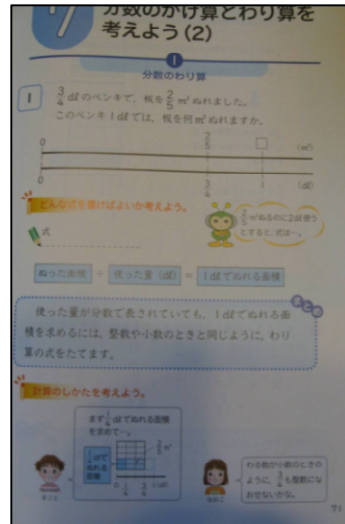 7
分数のかけ算とわり算を
考えよう(2)
1
分数のわり算
1 3/4 dLのペンキで，板を 2/5 m²ぬれました。
このペンキ1dLでは，板を何m²ぬれますか。
0 2/5 □ (m²)
0 3/4 1 (dL)
どんな式を書けばよいか考えよう。
式
2/5 m²ぬるのに2dL使う
とすると，式は…。
ぬった面積 ÷ 使った量(dL) = 1dLでぬれる面積
まとめ
使った量が分数で表されていても，1dLでぬれる面
積を求めるには，整数や小数のときと同じように，わり
算の式をたてます。
計算のしかたを考えよう。
まず 1/4 dLでぬれる面積
を求めて…。
1/4 dLで
ぬれる
面積
2/5 m²
0 1/4 3/4 1(dL)
まこと
わる数が小数のときの
ように，3/4 も整数にな
おせないかな。
なおこ
71